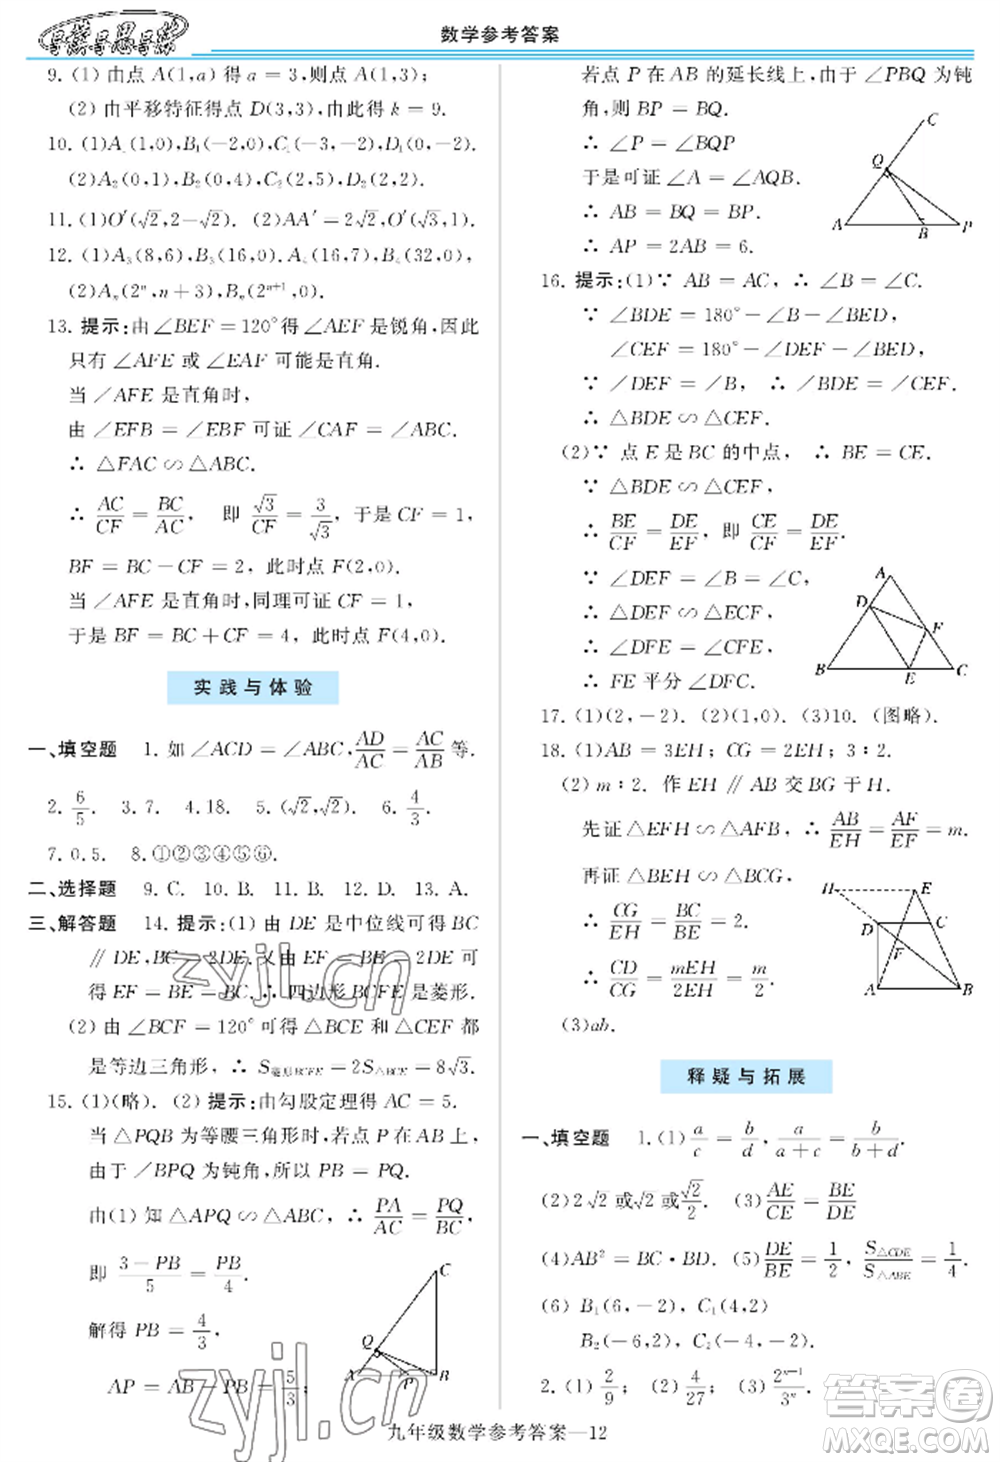 导学导思导练
数学参考答案
9. (1) 由点 A(1,a) 得 a = 3,则点 A(1,3);
(2) 由平移特征得点 D(3,3),由此得 k = 9.
10. (1)A₁(1,0),B₁(-2,0),C₁(-3,-2),D₁(0,-2).
(2)A₂(0,1),B₂(0,4),C₂(2,5),D₂(2,2).
11. (1)O′(√2,2-√2). (2)AA′ = 2√2,O′(√3,1).
12. (1)A₃(8,6),B₃(16,0).A₄(16,7),B₄(32,0).
(2)Aₙ(2ⁿ,n+3),Bₙ(2ⁿ⁺¹,0).
13. 提示:由∠BEF = 120°得∠AEF是锐角,因此
只有∠AFE或∠EAF可能是直角.
当∠AFE是直角时,
由∠EFB = ∠EBF可证∠CAF = ∠ABC.
∴ △FAC∽△ABC.
∴ AC/CF = BC/AC, 即 √3/CF = 3/√3,于是CF = 1,
BF = BC-CF = 2, 此时点F(2,0).
当∠AFE是直角时,同理可证CF = 1,
于是BF = BC+CF = 4, 此时点F(4,0).
实践与体验
一、填空题 1. 如∠ACD = ∠ABC,AD/AC = AC/AB等.
2. 6/5. 3. 7. 4. 18. 5. (√2,√2). 6. 4/3.
7. 0.5. 8. ①②③④⑤⑥.
二、选择题 9. C. 10. B. 11. B. 12. D. 13. A.
三、解答题 14. 提示:(1) 由DE是中位线可得BC
∥DE,BC = 2DE.又由EF = BE = 2DE可
得EF = BE = BC,∴ 四边形BCFE是菱形.
(2) 由∠BCF = 120°可得△BCE和△CEF都
是等边三角形, ∴ S菱形BCFE = 2S△ABC = 8√3.
15. (1)(略). (2) 提示:由勾股定理得AC = 5.
当△PQB为等腰三角形时,若点P在AB上,
由于∠BPQ为钝角,所以PB = PQ.
由(1)知△APQ∽△ABC, ∴ PA/AC = PQ/BC.
即 (3-PB)/5 = PB/4.
解得PB = 4/3.
AP = AB-PB = 5/3;
C
Q
A
P
B
若点P在AB的延长线上,由于∠PBQ为钝
角,则BP = BQ.
∴ ∠P = ∠BQP
于是可证∠A = ∠AQB.
∴ AB = BQ = BP.
∴ AP = 2AB = 6.
C
Q
A
B
P
16. 提示:(1)∵ AB = AC, ∴ ∠B = ∠C.
∵ ∠BDE = 180°-∠B-∠BED,
∠CEF = 180°-∠DEF-∠BED,
∵ ∠DEF = ∠B, ∴ ∠BDE = ∠CEF.
∴ △BDE∽△CEF.
(2)∵ 点E是BC的中点, ∴ BE = CE.
∵ △BDE∽△CEF,
∴ BE/CF = DE/EF, 即 CE/CF = DE/EF.
∵ ∠DEF = ∠B = ∠C,
∴ △DEF∽△ECF.
∴ ∠DFE = ∠CFE.
∴ FE平分∠DFC.
A
D
F
B
E
C
17. (1)(2,-2). (2)(1,0). (3)10. (图略).
18. (1)AB = 3EH; CG = 2EH; 3∶2.
(2) m∶2. 作EH∥AB交BG于H.
先证△EFH∽△AFB, ∴ AB/EH = AF/EF = m.
再证△BEH∽△BCG,
∴ CG/EH = BC/BE = 2.
∴ CD/CG = mEH/2EH = m/2.
(3)ab.
H
E
D
C
F
A
B
释疑与拓展
一、填空题 1. (1) a/c = b/d, a/(a+c) = b/(b+d).
(2) 2√2或√2或√2/2. (3) AE/CE = BE/DE
(4)AB² = BC·BD. (5) DE/BE = 1/2, S△CDE/S△ABE = 1/4.
(6) B₁(6,-2), C₁(4,2)
B₂(-6,2), C₂(-4,-2)
2. (1) 2/9 (2) 4/27 (3) 2ⁿ⁻¹/3ⁿ.
九年级数学参考答案—12
zyjl.cn
zyjl.cn
答案圈
MXQE.COM